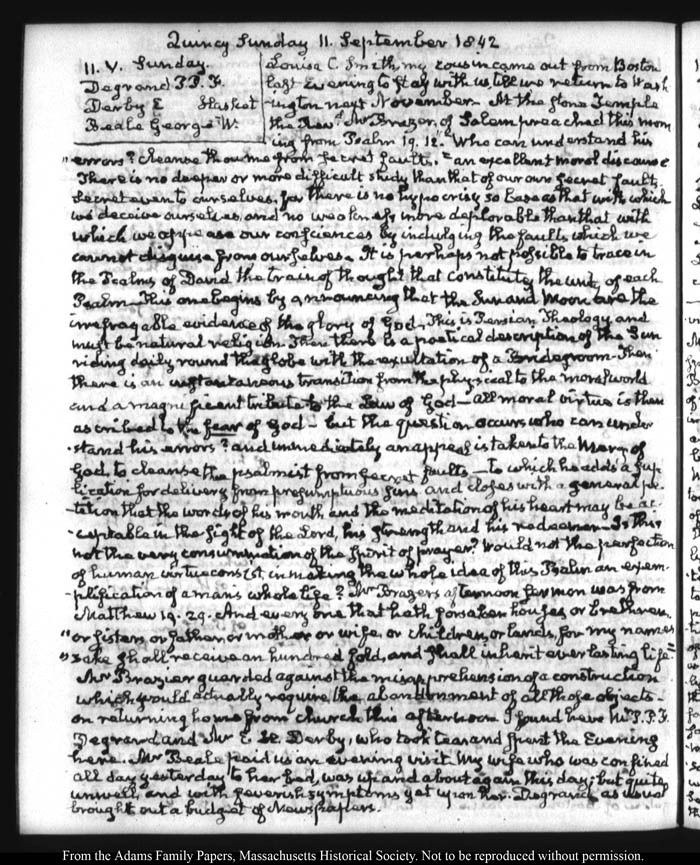 Quincy Sunday 11. September 1842
11. V. Sunday.
Degrand P.P.F.
Derby E Hasket
Beale George W.
Louisa C. Smith my cousin came out from Boston
last Evening to stay with us, till we return to Wash
ington next November. At the stone Temple
the Revd. Mr Brazer, of Salem preached this morn
ing from Psalm 19. 12. "Who can understand his
"errors? cleanse thou me from secret faults." an excellent moral discourse
There is no deeper or more difficult study than that of our own secret faults,
secret even to ourselves, for there is no hypocrisy so base as that with which
we deceive ourselves, and no weakness more deplorable than that with
which we appease our consciences by indulging the faults which we
cannot disguise from ourselves. It is perhaps not possible to trace in
the Psalms of David the train of thought that constitute the unity of each
Psalm. This one begins by announcing that the Sun and Moon are the
irrefragable evidence of the glory of God. This is Persian Theology and
must be natural religion. Then there is a poetical description of the Sun
riding daily round the globe with the exultation of a Bridegroom. Then
there is an instantaneous transition from the physical to the moral world
and a magnificent tribute to the Law of God - all moral virtue is then
ascribed to the fear of God - but the question occurs who can under
-stand his errors? and immediately an appeal is taken to the Mercy of
God, to cleanse the psalmist from secret faults - to which he adds a sup
plication for delivery from presumptuous sins and closes with a general pe-
-tition that the words of his mouth and the meditation of his heart may be ac-
-ceptable in the sight of the Lord, his strength and his redeemer - Is this
not the very consummation of the spirit of prayer? Would not the perfection
of human virtue consist, in making the whole idea of this Psalm an exem-
-plification of a mans whole life? Mr Brazers afternoon sermon was from
Matthew 19. 29. And every one that hath forsaken houses, or brethren,
"or sisters, or father, or mother or wife, or children, or lands, for my names
"sake shall receive an hundred fold, and shall inherit everlasting life."
Mr Brazier guarded against the misapprehension of a construction
which would actually require the abandonment of all those objects.
on returning home from church this afternoon I found here Mr P.P.F.
Degrand and Mr E. H. Derby, who took tea and spent the Evening
here. Mr Beale paid us an evening visit. My wife who was confined
all day yesterday to her bed, was up and about again this day, but quite
unwell, and with feverish symptoms yet upon her. Degrand as usual
brought out a budget of Newspapers.
From the Adams Family Papers, Massachusetts Historical Society. Not to be reproduced without permission.